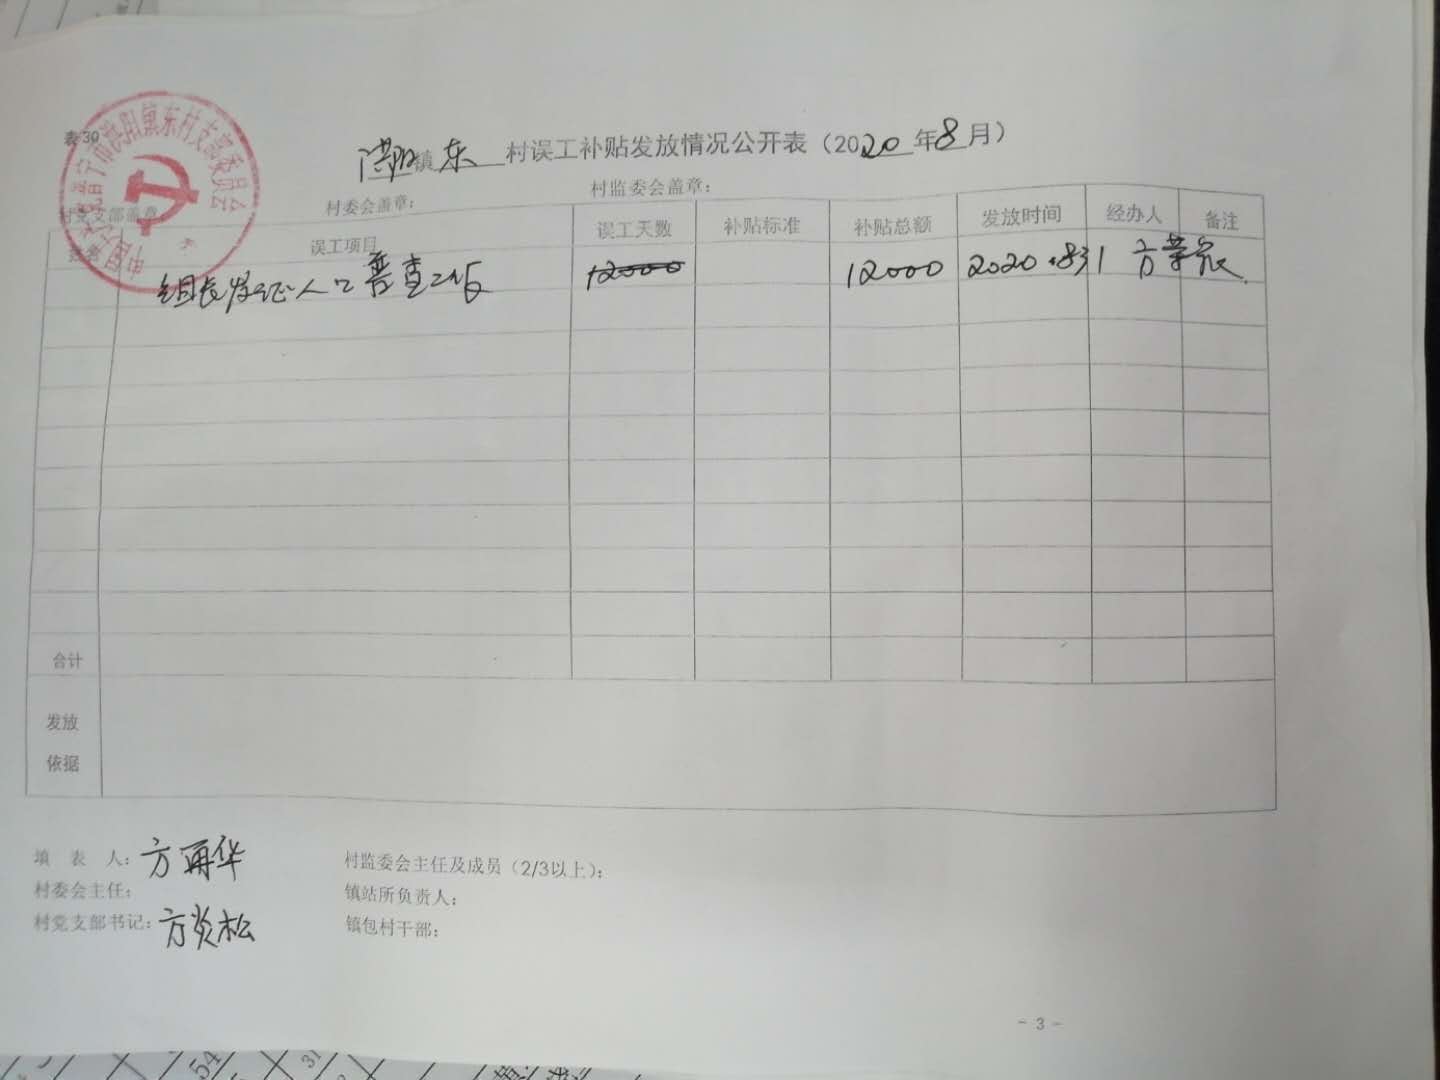 表30
中国共产党普宁市洪阳镇东村支部委员会
洪阳镇 东 村误工补贴发放情况公开表（2020年8月）
村党支部盖章： 村委会盖章： 村监委会盖章：
误工项目 误工天数 补贴标准 补贴总额 发放时间 经办人 备注
组长发证人口普查工作 12000 12000 2020.831 方
合计
发放
依据
填 表 人：方再华 村监委会主任及成员（2/3以上）：
村委会主任： 镇站所负责人：
村党支部书记：方炎松 镇包村干部：
- 3 -
54
31